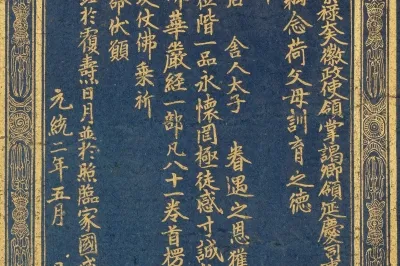 祿矣徽政使領掌謁卿領延慶司
竊念荷父母訓育之德
舍人太子 眷遇之恩獲
位階一品永懷罔極徒感寸誠
華嚴經一部凡八十一卷首楞
仗佛乘祈
命伏願
於覆壽日月並於照臨家國咸
元統二年五月